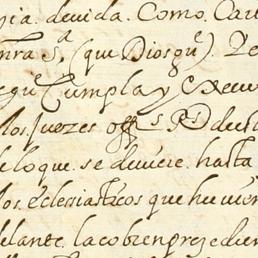 ia devida. Como. Car
nra Sᵃ. (que Dios gᵉ). Pe
egᵉ Cumpla y Execu
los Juezes offˢ Rˢ de
de lo que. se deviere. hasta
los ecclesiasticos que huvier
delante. la cobren prezedien